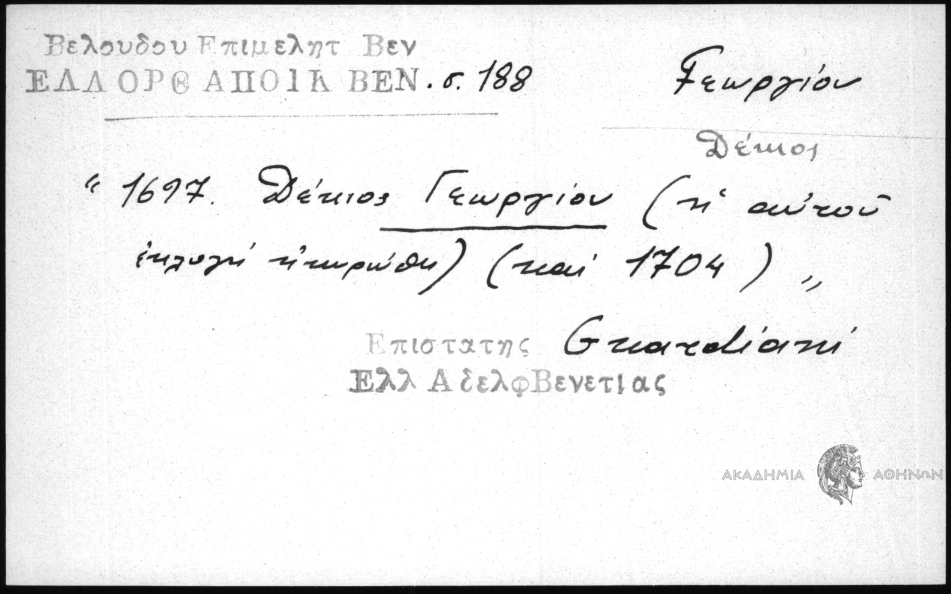 Βελουδου Επιμελητ Βεν
ΕΛΛ ΟΡΘ ΑΠΟΙΚ ΒΕΝ. σ. 188
Γεωργίου
Δέκιος
" 1697. Δέκιος Γεωργίου (ἡ αὐτοῦ
ἐκλογή ἠκυρώθη) (καί 1704) "
Επιστατης Guardiani
Ελλ Αδελφ Βενετιας
ΑΚΑΔΗΜΙΑ ΑΘΗΝΩΝ